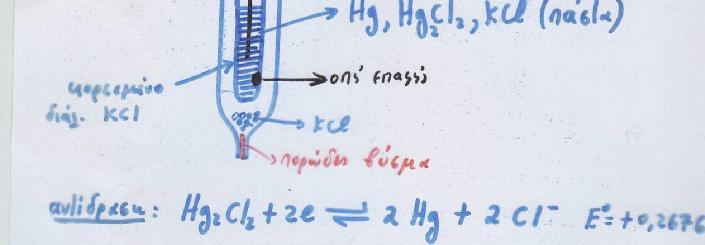 Hg, Hg2Cl2, KCl (πάστα)
οπή επαφής
κορεσμένο
διάλ. KCl
KCl
πορώδες βύσμα
αντίδραση: Hg2Cl2 + 2e ⇌ 2 Hg + 2 Cl⁻ E°=+0,2676